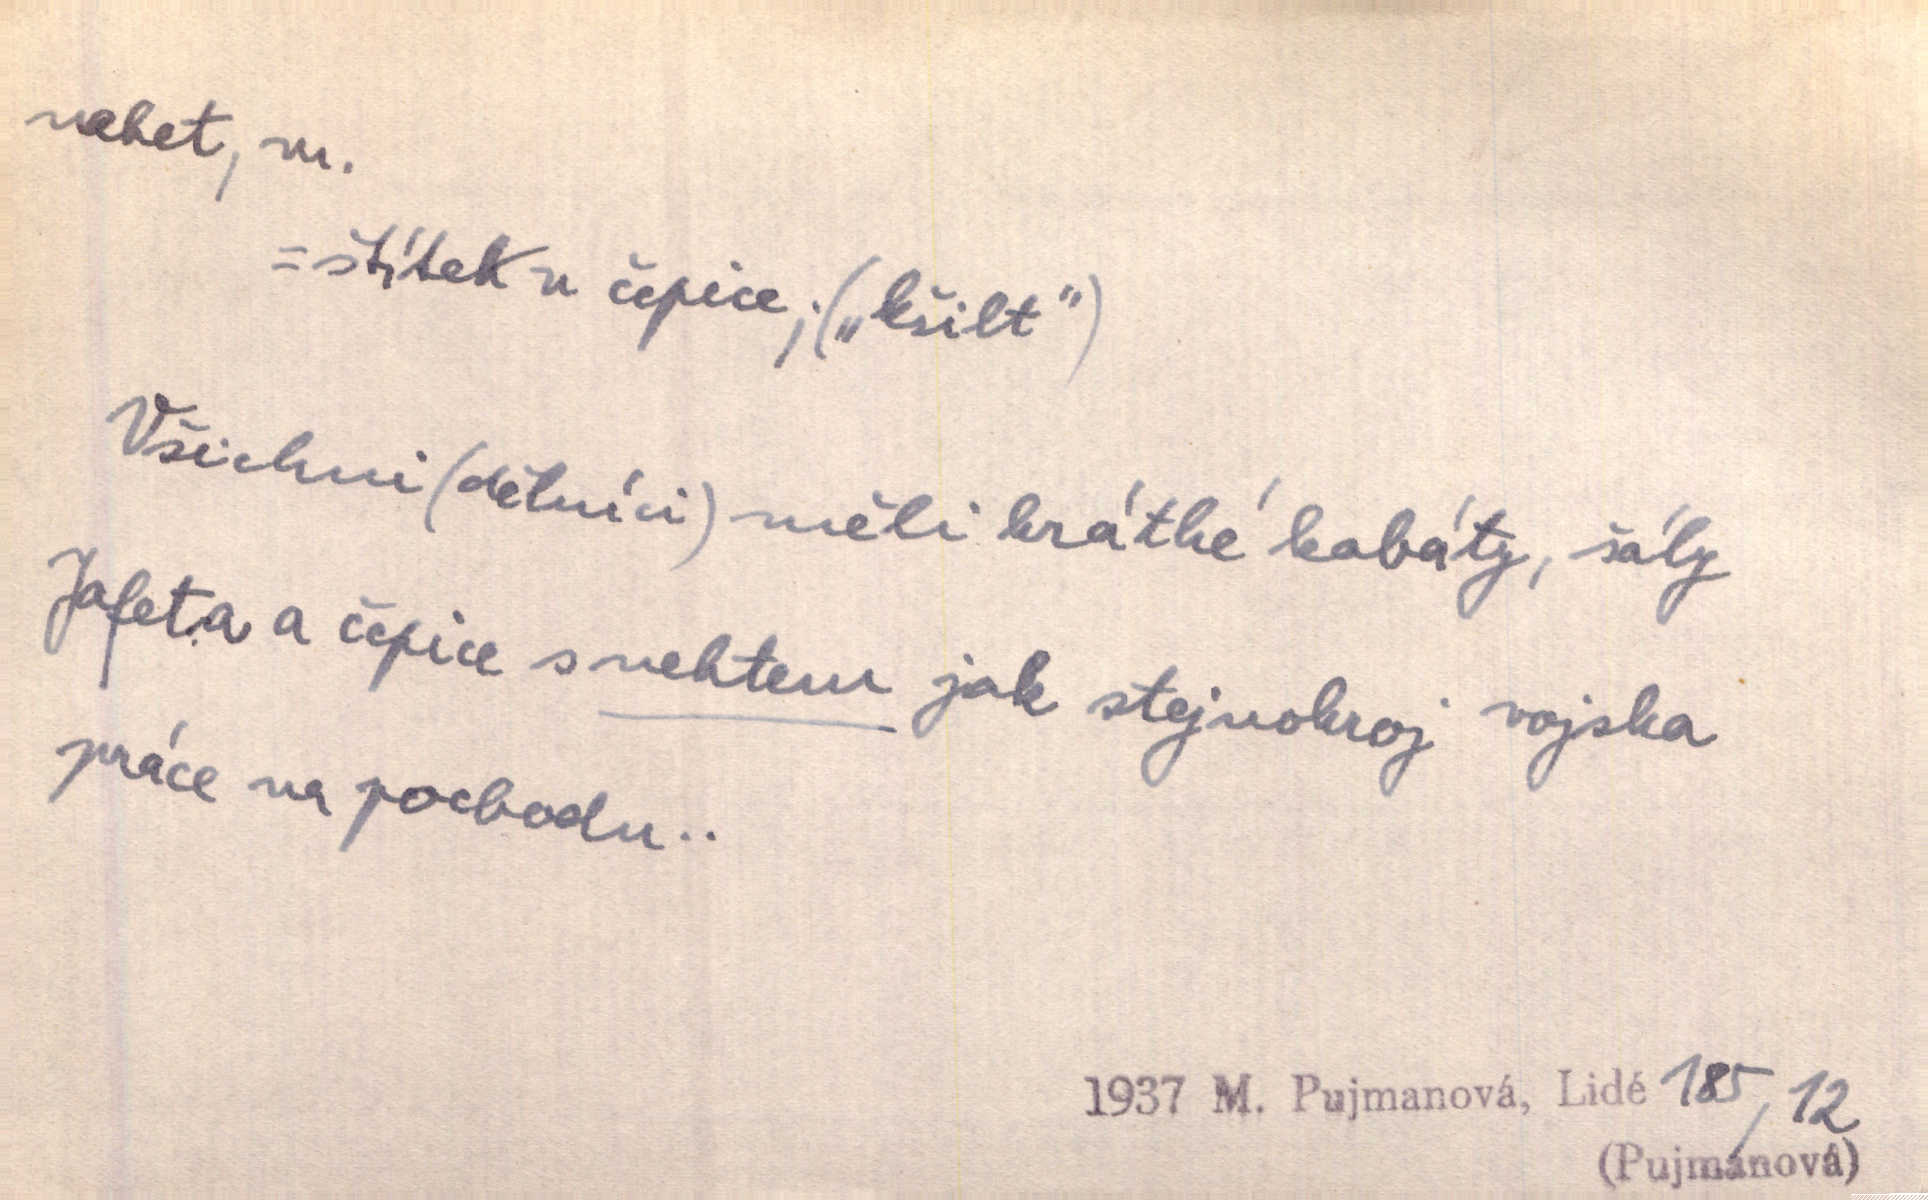 nehet, m.
= štítek u čepice, („kšilt")
Všichni (dělníci) měli krátké kabáty, šály
Jafeta a čepice s nehtem jak stejnokroj vojska
práce na pochodu..
1937 M. Pujmanová, Lidé 185, 12
(Pujmanová)